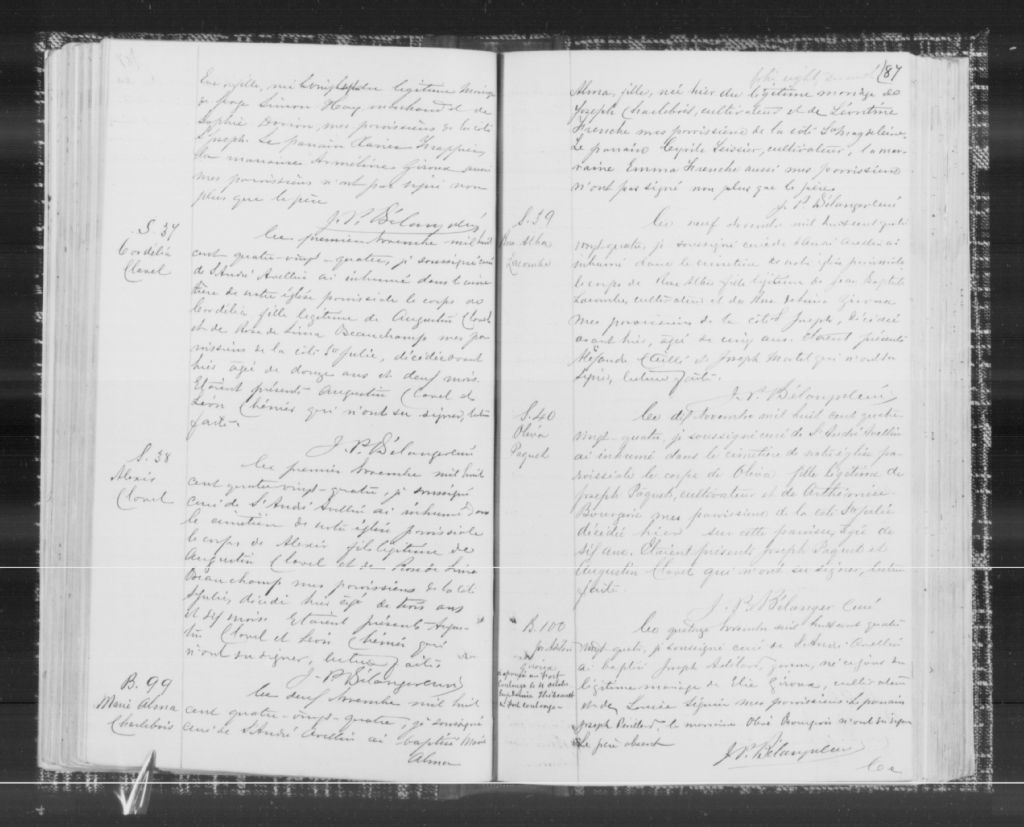 légitime mariage
de Simon Hay marchand et de
Sophie mes paroissiens de la côte
St Joseph. Le parrain Xavier
la marraine Giroux aussi
mes paroissiens n'ont pas signé non
plus que le père
J. P. Bélanger curé
S. 37
Cordélia
Clavel
Le premier novembre mil huit
cent quatre-vingt-quatre, je soussigné curé
de St André Avellin ai inhumé dans le cime
tière de notre église paroissiale le corps de
Cordélia fille légitime de Augustin Clavel
et de Rose de Lima Beauchamp mes pa
roissiens de la côte Ste Julie, décédée avant
hier âgée de douze ans et neuf mois.
Etaient présents Augustin Clavel et
Léon Chénier qui n'ont su signer, lecture
faite.
J. P. Bélanger curé
S. 38
Alexis
Clavel
Le premier novembre mil huit
cent quatre-vingt-quatre, je soussigné
curé de St André Avellin ai inhumé dans
le cimetière de notre église paroissiale
le corps de Alexis fils légitime de
Augustin Clavel et de Rose de Lima
Beauchamp mes paroissiens de la côte
Ste Julie, décédé hier âgé de trois ans
et six mois. Etaient présents Augus-
tin Clavel et Léon Chénier qui
n'ont su signer, lecture faite
J. P. Bélanger curé
B. 99
Marie Alma
Charlebois
Le neuf novembre mil huit
cent quatre-vingt-quatre, je soussigné
curé de St André Avellin ai baptisé Marie
Alma
87
Alma, fille, née hier du légitime mariage de
Joseph Charlebois, cultivateur et de Léontine
mes paroissiens de la côte Ste Magdeleine.
Le parrain Cyrile Tessier, cultivateur, la mar-
raine Emma aussi mes paroissiens
n'ont pas signé non plus que le père
J. P. Bélanger curé
S. 39
Rose Alba
Lacombe
Le neuf novembre mil huit cent quatre
vingt-quatre, je soussigné curé de St André Avellin ai
inhumé dans le cimetière de notre église paroissiale
le corps de Rose Alba fille légitime de Jean Baptiste
Lacombe, cultivateur et de Rose de Lima Giroux
mes paroissiens de la côte St Joseph, décédée
avant hier, âgée de cinq ans. Etaient présents
et Joseph Martel qui n'ont su
signer, lecture faite.
J. P. Bélanger curé
S. 40
Oliva
Paquet
Le dix novembre mil huit cent quatre
vingt-quatre, je soussigné curé de St André Avellin
ai inhumé dans le cimetière de notre église pa
roissiale le corps de Oliva fille légitime de
Joseph Paquet, cultivateur et de Arthémise
Bourgeois mes paroissiens de la côte Ste Julie
décédée hier sur cette paroisse, âgée de
six ans. Etaient présents Joseph Paquet et
Augustin Clavel qui n'ont su signer, lecture
faite.
J. P. Bélanger Curé
B. 100
Giroux
Le quatorze novembre mil huit cent quatre
vingt-quatre, je soussigné curé de St André Avellin
ai baptisé Joseph né du
légitime mariage de Elie Giroux, cultivateur
et de mes paroissiens. Le parrain
Joseph la marraine Bourgeois n'ont su signer
Le père absent
J. P. Bélanger curé
Le